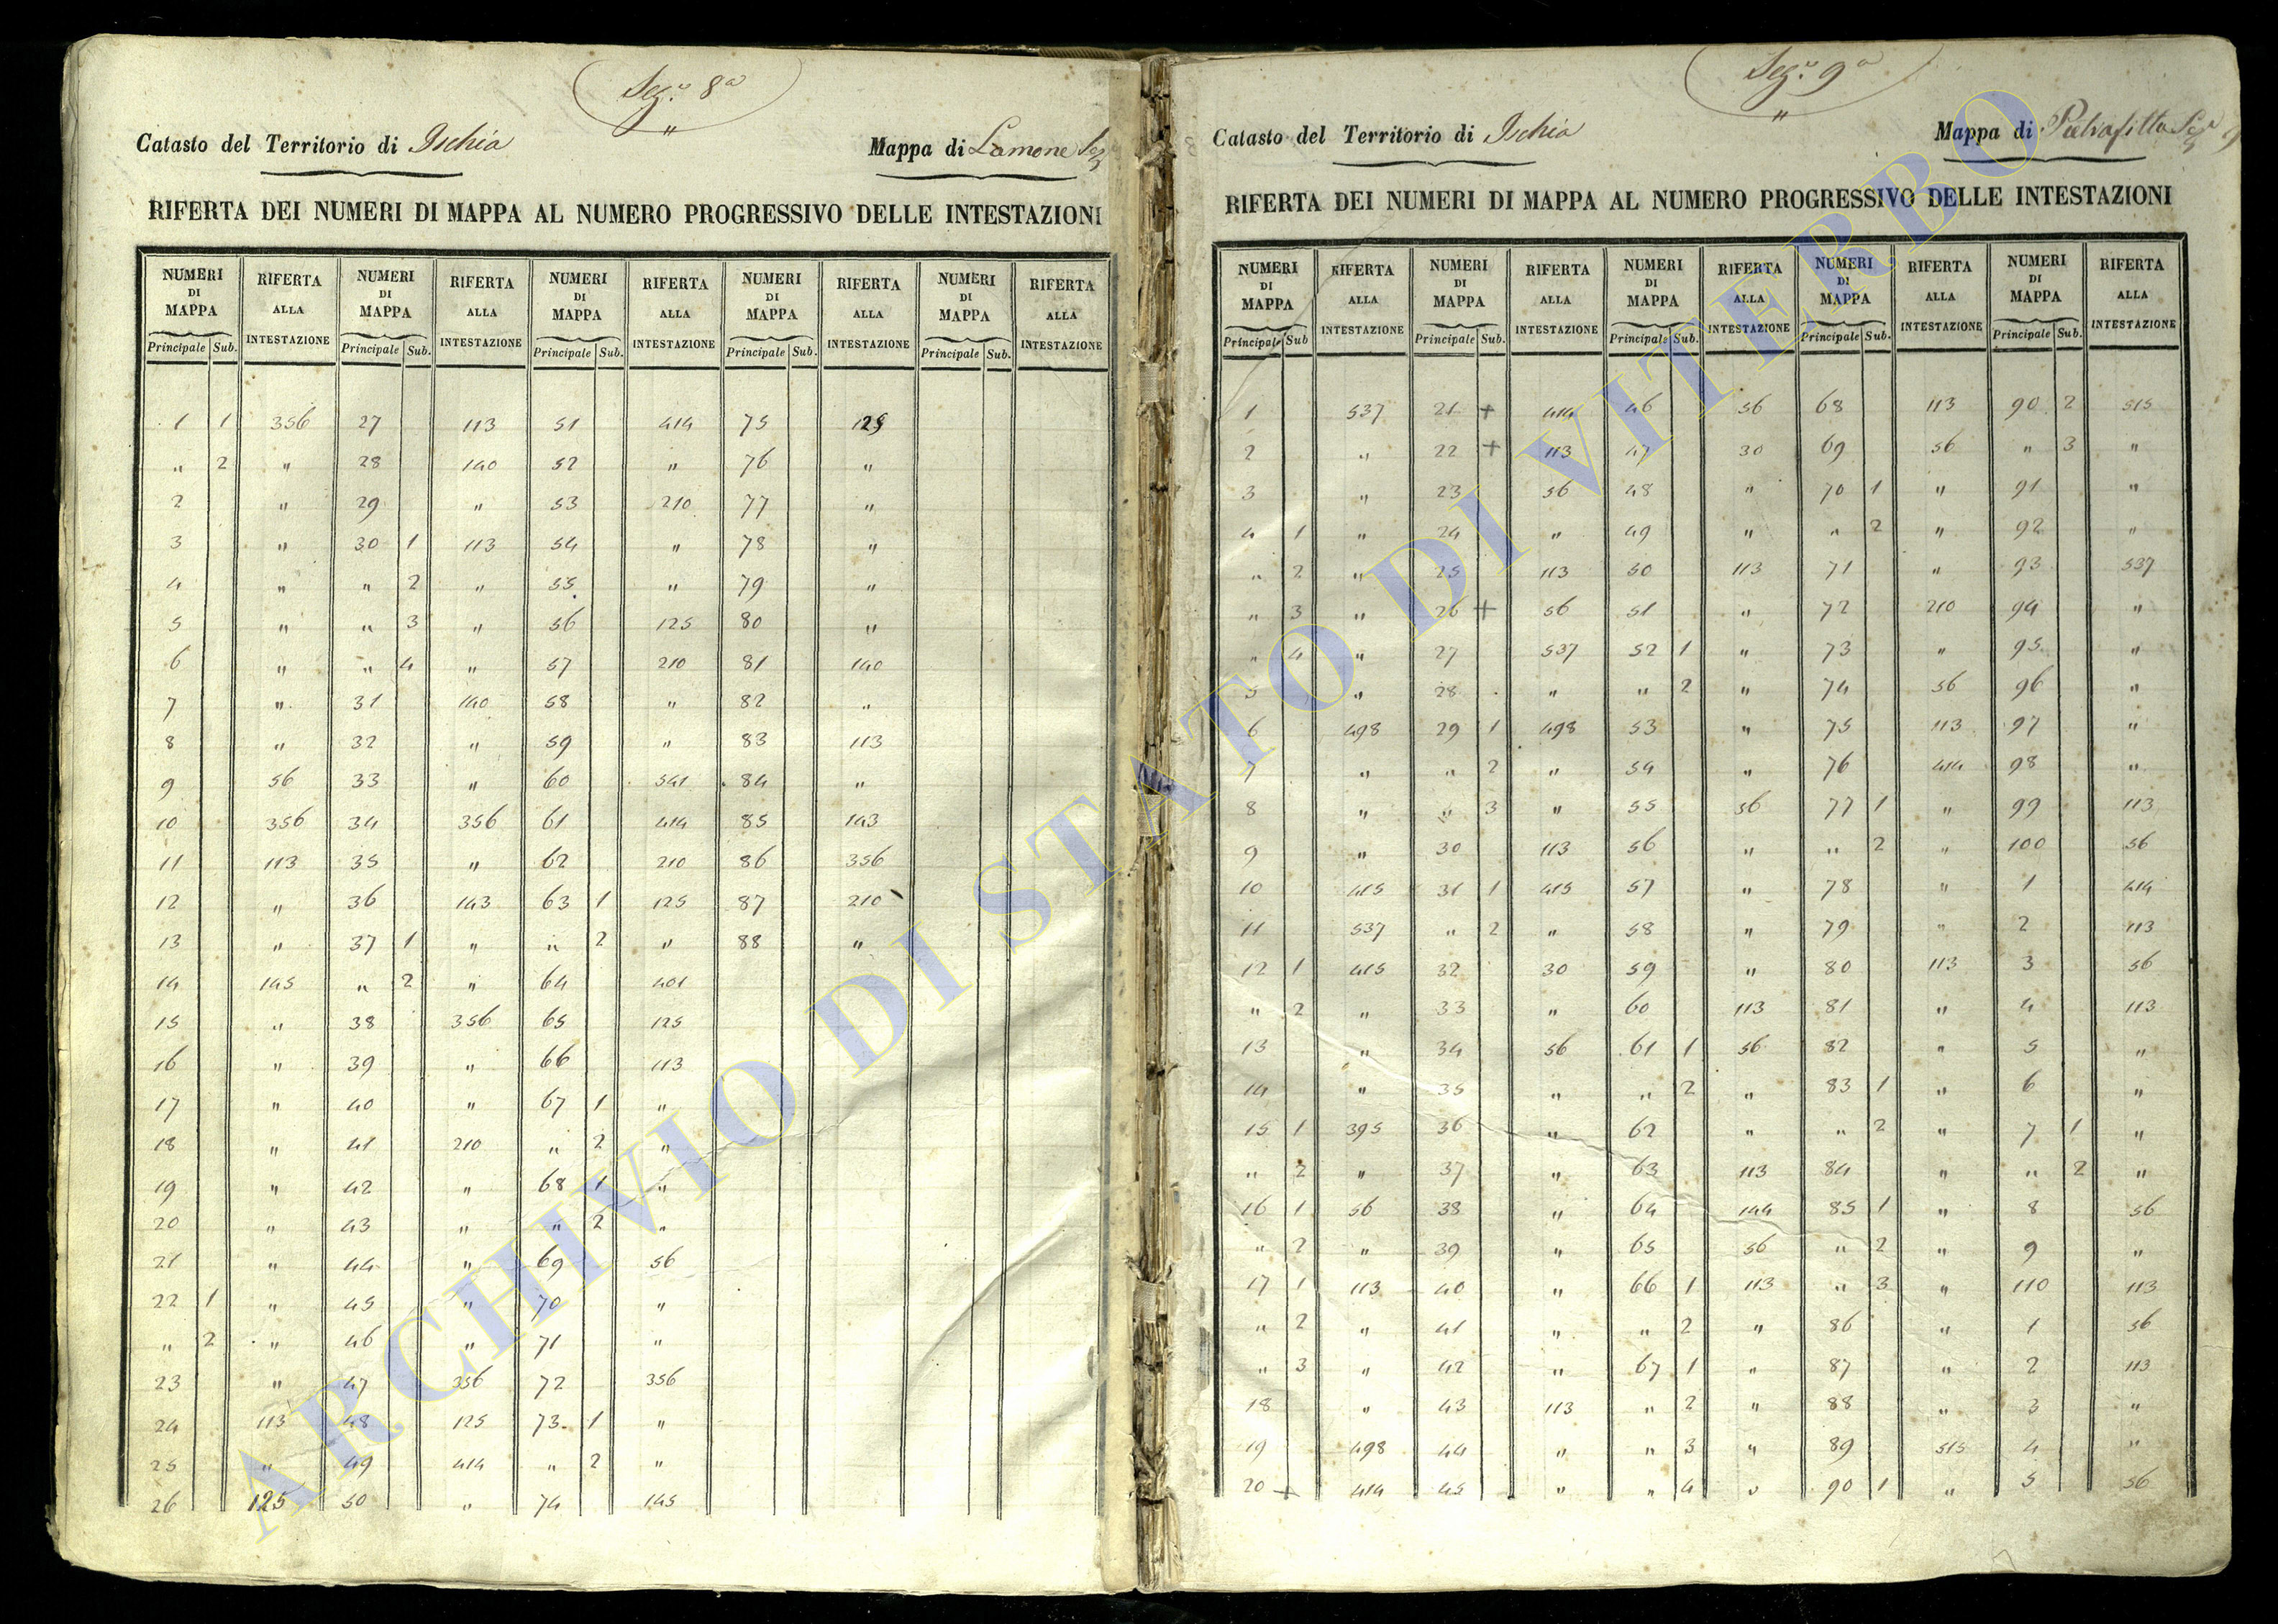 Seg.ª 8ª
"
Catasto del Territorio di Ischia
Mappa di Lamone Sez
RIFERTA DEI NUMERI DI MAPPA AL NUMERO PROGRESSIVO DELLE INTESTAZIONI
NUMERI DI MAPPA RIFERTA ALLA INTESTAZIONE NUMERI DI MAPPA RIFERTA ALLA INTESTAZIONE NUMERI DI MAPPA RIFERTA ALLA INTESTAZIONE NUMERI DI MAPPA RIFERTA ALLA INTESTAZIONE NUMERI DI MAPPA RIFERTA ALLA INTESTAZIONE
Principale Sub. Principale Sub. Principale Sub. Principale Sub. Principale Sub.
1 1 356 27 113 51 414 75 125
" 2 " 28 140 52 " 76 "
2 " 29 " 53 210 77 "
3 " 30 1 113 54 " 78 "
4 " " 2 " 55 " 79 "
5 " " 3 " 56 125 80 "
6 " " 4 " 57 210 81 140
7 " 31 140 58 " 82 "
8 " 32 " 59 " 83 113
9 56 33 " 60 541 84 "
10 356 34 356 61 414 85 143
11 113 35 " 62 210 86 356
12 " 36 143 63 1 125 87 210
13 " 37 1 " " 2 " 88 "
14 145 " 2 " 64 401
15 " 38 356 65 125
16 " 39 " 66 113
17 " 40 " 67 1 "
18 " 41 210 " 2 "
19 " 42 " 68 1 "
20 " 43 " " 2 "
21 " 44 " 69 56
22 1 " 45 " 70 "
" 2 " 46 " 71 "
23 " 47 356 72 356
24 113 48 125 73 1 "
25 " 49 414 " 2 "
26 125 50 " 74 145
Seg.ª 9ª
"
Catasto del Territorio di Ischia
Mappa di Pietrafitta Seza 9
RIFERTA DEI NUMERI DI MAPPA AL NUMERO PROGRESSIVO DELLE INTESTAZIONI
NUMERI DI MAPPA RIFERTA ALLA INTESTAZIONE NUMERI DI MAPPA RIFERTA ALLA INTESTAZIONE NUMERI DI MAPPA RIFERTA ALLA INTESTAZIONE NUMERI DI MAPPA RIFERTA ALLA INTESTAZIONE NUMERI DI MAPPA RIFERTA ALLA INTESTAZIONE
Principale Sub Principale Sub. Principale Sub. Principale Sub. Principale Sub.
1 537 21 + 414 46 56 68 113 90 2 515
2 " 22 + 113 47 30 69 56 " 3 "
3 " 23 56 48 " 70 1 " 91 "
4 1 " 24 " 49 " " 2 " 92 "
" 2 " 25 113 50 113 71 " 93 537
" 3 " 26 + 56 51 " 72 210 94 "
" 4 " 27 537 52 1 " 73 " 95 "
5 " 28 " " 2 " 74 56 96 "
6 498 29 1 498 53 " 75 113 97 "
7 " " 2 " 54 " 76 414 98 "
8 " " 3 " 55 56 77 1 " 99 113
9 " 30 113 56 " " 2 " 100 56
10 415 31 1 415 57 " 78 " 1 414
11 537 " 2 " 58 " 79 " 2 113
12 1 415 32 30 59 " 80 113 3 56
" 2 " 33 " 60 113 81 " 4 113
13 " 34 56 61 1 56 82 " 5 "
14 " 35 " " 2 " 83 1 " 6 "
15 1 395 36 " 62 " " 2 " 7 1 "
" 2 " 37 " 63 113 84 " " 2 "
16 1 56 38 " 64 144 85 1 " 8 56
" 2 " 39 " 65 56 " 2 " 9 "
17 1 113 40 " 66 1 113 " 3 " 110 113
" 2 " 41 " " 2 " 86 " 1 56
" 3 " 42 " 67 1 " 87 " 2 113
18 " 43 113 " 2 " 88 " 3 "
19 498 44 " " 3 " 89 515 4 "
20 + 414 45 " " 4 " 90 1 " 5 56
ARCHIVIO DI STATO DI VITERBO